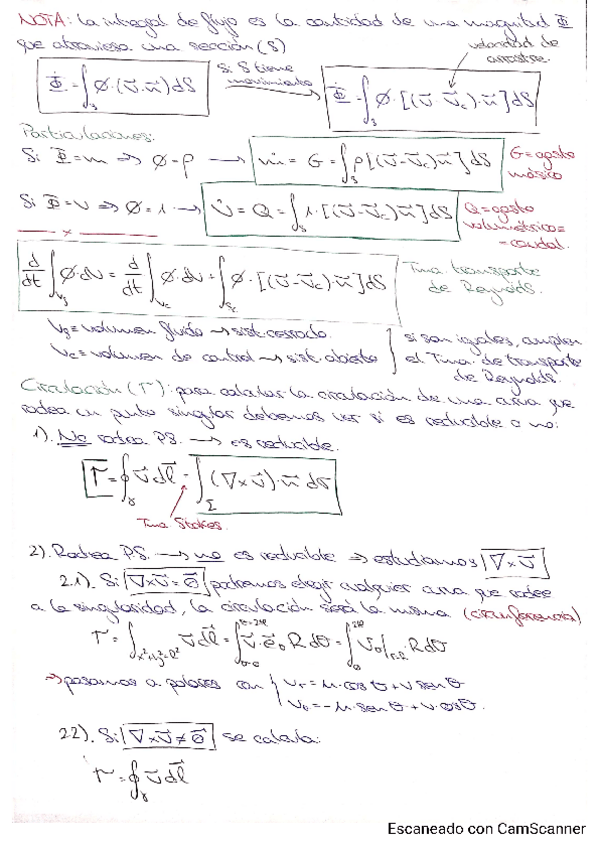 NOTA: la integral de flujo es la cantidad de una magnitud Φ
que atraviesa una sección (S)
velocidad de arrastre.
Φ̇ = ∫_S φ·(v⃗·n⃗)dS
Si S tiene movimiento
Φ̇ = ∫_S φ·[(v⃗-v⃗c)·n⃗]dS
Particularizaciones:
Si Φ=m ⇒ φ=ρ → ṁ = G = ∫_S ρ[(v⃗-v⃗c)n⃗]dS
G=gasto másico
Si Φ=V ⇒ φ=1 → V̇ = Q = ∫_S 1·[(v⃗-v⃗c)n⃗]dS
Q=gasto volumétrico= =caudal.
d/dt ∫_Vf φ·dV = d/dt ∫_Vc φ·dV + ∫_Sc φ·[(v⃗-v⃗c)·n⃗]dS
Tma. transporte de Reynolds.
Vf = volumen fluido → sist. cerrado.
Vc = volumen de control → sist. abierto
si son iguales, cumplen el Tma. de transporte de Reynolds.
Circulación (Γ): para calcular la circulación de una curva que
rodea un punto singular debemos ver si es reducible o no:
1). No rodea P.S. → es reducible.
Γ = ∮_γ v⃗ dl⃗ = ∫_Σ (∇×v⃗)·n⃗ dσ
Tma Stokes.
2). Rodea P.S. → no es reducible ⇒ estudiamos ∇×v⃗
2.1). Si ∇×v⃗=0⃗ podremos elegir cualquier curva que rodee
a la singularidad, la circulación será la misma (circunferencia)
Γ = ∫_x²+y²=R² v⃗dl⃗ = ∫_θ=0^θ=2π v⃗·e⃗θ R dθ = ∫_0^2π Vθ|r=R R dθ
⇒ pasamos a polares con { vr = u·cosθ + v senθ
vθ = -u·senθ + v·cosθ.
2.2). Si ∇×v⃗≠0⃗ se calcula:
Γ = ∮_γ v⃗ dl⃗
Escaneado con CamScanner